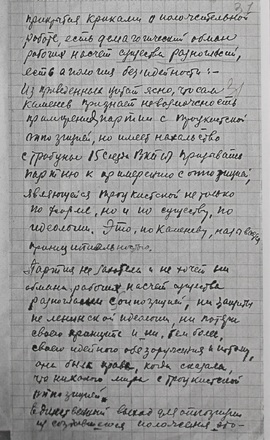 37
прикрытия криками о положительной
работе есть демагогический обман
рабочих насчет существа разногласий,
есть а
безидейность:-
Из приведенных цитат ясно, что сам
Каменев признает невозможность
примирения партии с троцкистской
оппозицией, но имеет нахальство
с трибуны 15 съезда ВКП(б) призывать
партию к примирению с оппозицией,
являющейся троцкистской не только
по форме, но и по существу, по
идеологии. Это, по Каменеву,
принципиальностью.
Партия не боялась и не хочет ни
обмана рабочих насчет существа
разногласий с оппозицией, ни защиты
не ленинской идеологии, ни потери
своего принципа и ни, тем более,
своего идейного обезоружения и потому,
она была права, когда сказала,
что никакого мира с троцкистской
оппозицией.
Единственный выход для оппозиции
из создавшегося положения, это-